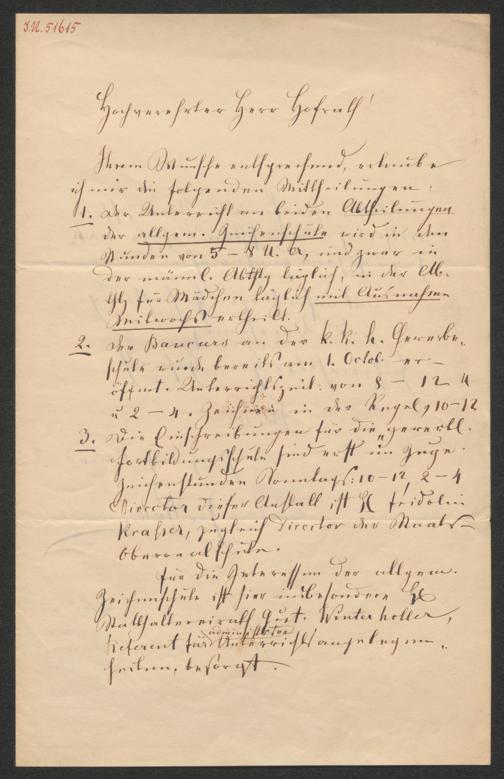 J.N. 51615
Hochverehrter Herr Hofrath!
Ihrem Wunsche entsprechend, erlaube
ich mir die folgenden Mittheilungen:
1. Der Unterricht an beiden Abtheilungen
der allgem. Zeichenschule wird in den
Stunden von 5 – 8 U. und zwar in
der männl. Abthlg täglich, in der Ab-
thlg für Mädchen täglich mit Ausnahme
Mitwochs ertheilt.
2. Der an der k. k. Gewerbe-
schule wurde bereits am 1. Octob. er-
öffnet. Unterrichtszeit: von 8 – 12 U
u 2 – 4. Zeichnen in der Regel 10–12
3. Die Einschreibungen für die gewerbl.
Fortbildungsschule sind erst im Zuge.
Zeichenstunden Sonntags: 10–12, 2–4
Director dieser Anstalt ist H Fridolin
Krasser, zugleich Director der Staats-
Oberrealschule.
Für die Interessen der allgem.
Zeichenschule ist hier insbesondere H
Statthaltereirath Gust. Winterholler,
administrative
Referent für Unterrichtsangelegen-
heiten, besorgt.